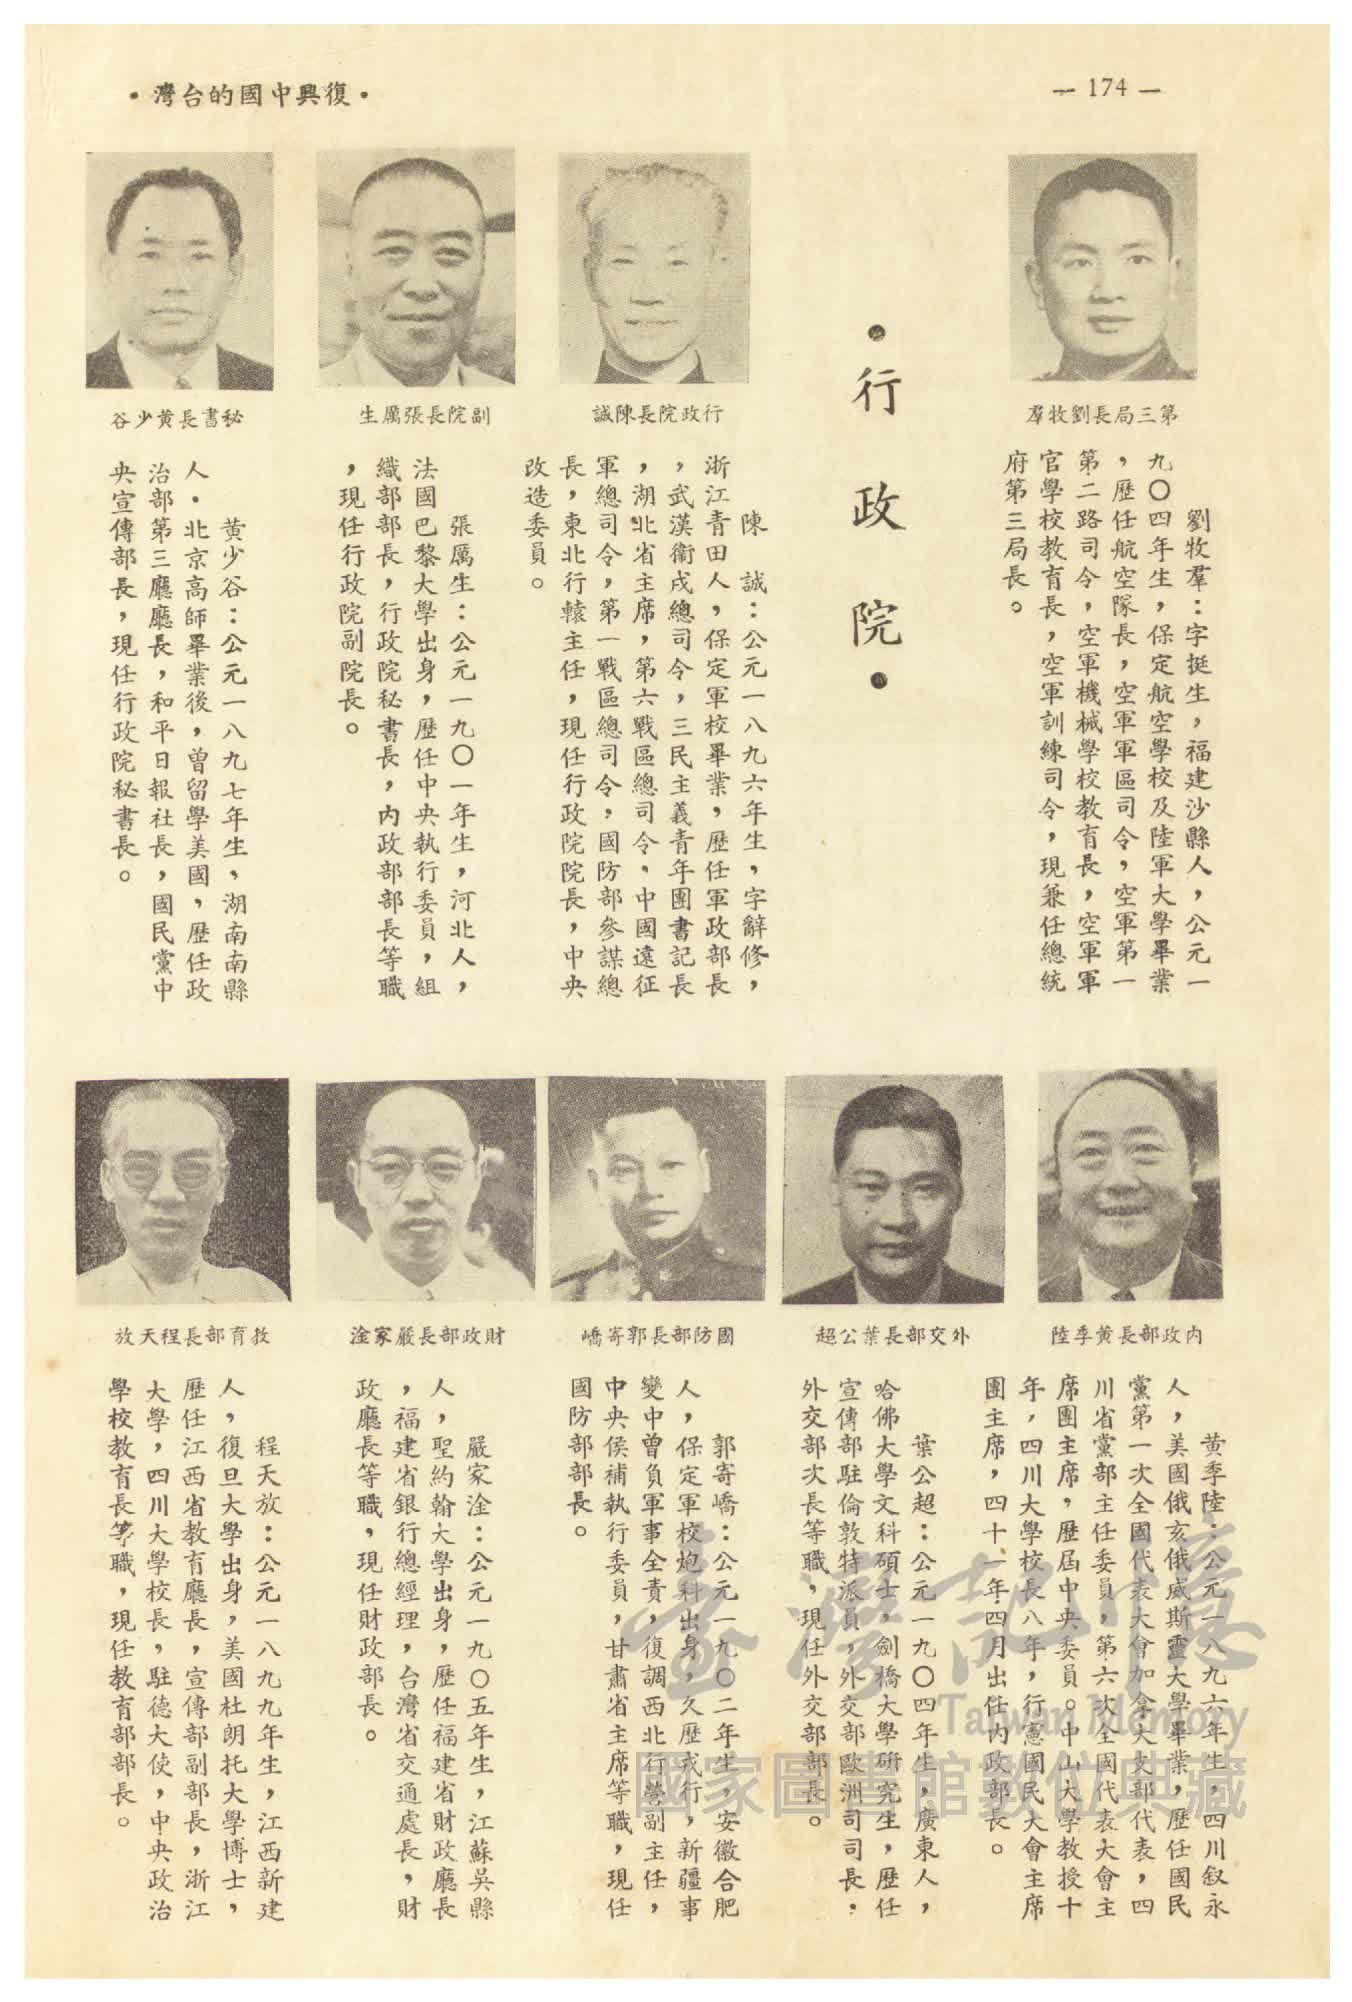 — 174 —
•復興中國的台灣•
第三局局長劉牧羣
劉牧羣：字挺生，福建沙縣人，公元一
九〇四年生，保定航空學校及陸軍大學畢業
，歷任航空隊長，空軍軍區司令，空軍第一
第二路司令，空軍機械學校教育長，空軍軍
官學校教育長，空軍訓練司令，現兼任總統
府第三局長。
•行政院•
行政院長陳誠
陳　誠：公元一八九六年生，字辭修，
浙江青田人，保定軍校畢業，歷任軍政部長
，武漢衞戍總司令，三民主義青年團書記長
，湖北省主席，第六戰區總司令，中國遠征
軍總司令，第一戰區總司令，國防部參謀總
長，東北行轅主任，現任行政院院長，中央
改造委員。
副院長張厲生
張厲生：公元一九〇一年生，河北人，
法國巴黎大學出身，歷任中央執行委員，組
織部部長，行政院秘書長，內政部部長等職
，現任行政院副院長。
秘書長黃少谷
黃少谷：公元一八九七年生，湖南南縣
人。北京高師畢業後，曾留學美國，歷任政
治部第三廳廳長，和平日報社長，國民黨中
央宣傳部長，現任行政院秘書長。
內政部長黃季陸
黃季陸：公元一八九六年生，四川叙永
人，美國俄亥俄威斯靈大學畢業，歷任國民
黨第一次全國代表大會加拿大支部代表，四
川省黨部主任委員，第六次全國代表大會主
席團主席，歷屆中央委員。中山大學教授十
年，四川大學校長八年，行憲國民大會主席
團主席，四十一年四月出任內政部長。
外交部長葉公超
葉公超：公元一九〇四年生，廣東人，
哈佛大學文科碩士，劍橋大學研究生，歷任
宣傳部駐倫敦特派員，外交部歐洲司司長，
外交部次長等職，現任外交部部長。
國防部長郭寄嶠
郭寄嶠：公元一九〇二年生，安徽合肥
人，保定軍校炮科出身，久歷戎行，新疆事
變中曾負軍事全責，復調西北行營副主任，
中央侯補執行委員，甘肅省主席等職，現任
國防部部長。
財政部長嚴家淦
嚴家淦：公元一九〇五年生，江蘇吳縣
人，聖約翰大學出身，歷任福建省財政廳長
，福建省銀行總經理，台灣省交通處長，財
政廳長等職，現任財政部長。
教育部長程天放
程天放：公元一八九九年生，江西新建
人，復旦大學出身，美國杜朗托大學博士，
歷任江西省教育廳長，宣傳部副部長，浙江
大學，四川大學校長，駐德大使，中央政治
學校教育長等職，現任教育部部長。
臺灣記憶
Taiwan Memory
國家圖書館數位典藏